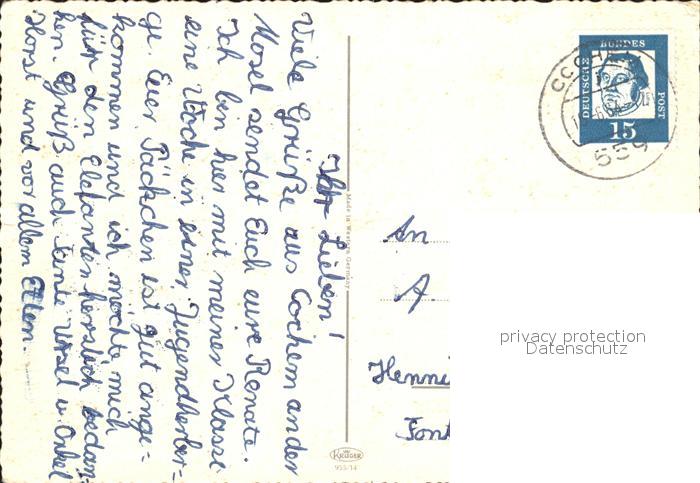 Ihr Lieben!
Viele Grüße aus Cochem an der
Mosel sendet Euch eure Renate.
Ich bin hier mit meiner Klasse
eine Woche in einer Jugendherber-
ge. Euer Päckchen ist gut ange-
kommen und ich möchte mich
für den Elefanten herzlich bedan-
ken. Grüß auch Tante Ursel u. Onkel
Horst und vor allem
Made in Western Germany
KRÜGER
953/14
DEUTSCHE
BUNDES
POST
15
COCHEM
559
An
Henni
Font
privacy protection
Datenschutz